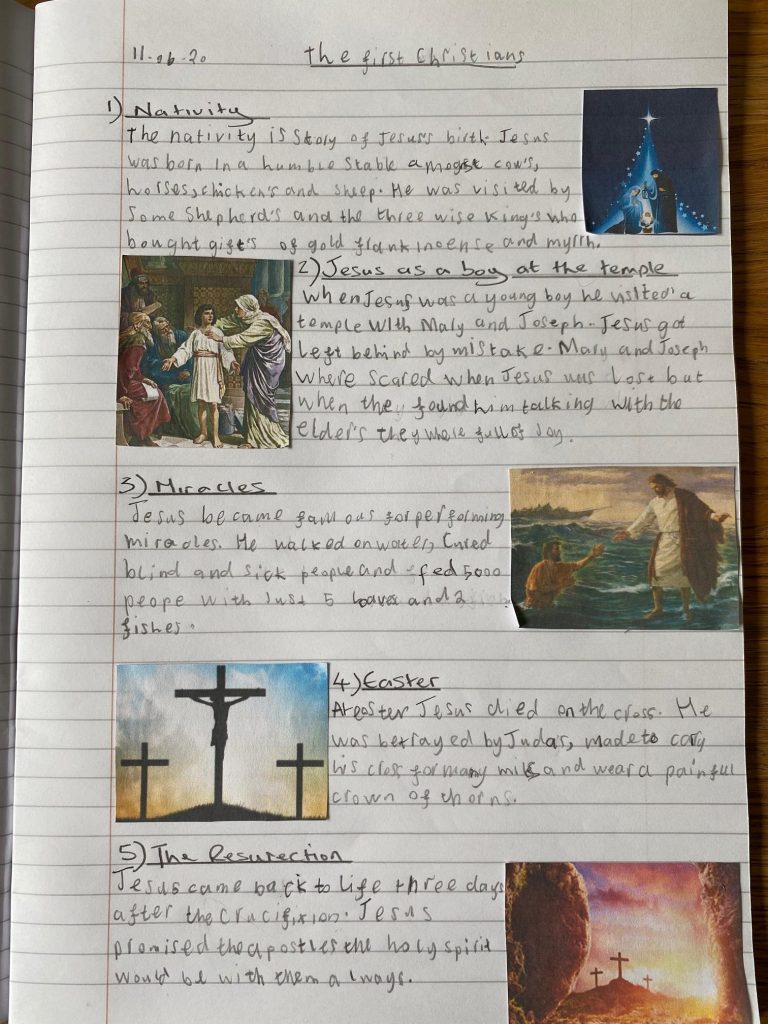 11-06-20
The first Christians
1) Nativity
The nativity is story of Jesus's birth. Jesus
was born in a humble stable amogst cow's,
horses, chicken's and sheep. He was visited by
some Shepherd's and the three wise king's who
bought gift's of gold frankincense and myrrh.
2) Jesus as a boy at the temple
When Jesus was a young boy he visited a
temple with Mary and Joseph. Jesus got
left behind by mistake. Mary and Joseph
where scared when Jesus was lost but
when they found him talking with the
elder's they where full of Joy.
3) Miracles
Jesus became famous for performing
miracles. He walked on water, Cured
blind and sick people and fed 5000
peope with Just 5 loaves and 2
fishes.
4) Easter
At easter Jesus died on the cross. He
was betrayed by Judas, made to cary
his cross for many miles and wear a painful
crown of thorns.
5) The Resurection
Jesus came back to life three days
after the Crucifixion. Jesus
promised the apostles the holy spirit
would be with them always.